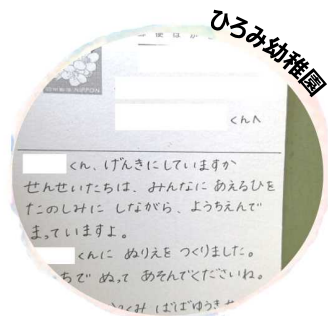 ひろみ幼稚園
郵便はが
NIPPON
くんへ
くん、げんきにしていますか
せんせいたちは、みんなにあえるひを
たのしみに しながら、ようちえんで
まっていますよ。
くんに ぬりえを つくりました。
ちで ぬって あそんでくださいね。
くみ ばばゆうき